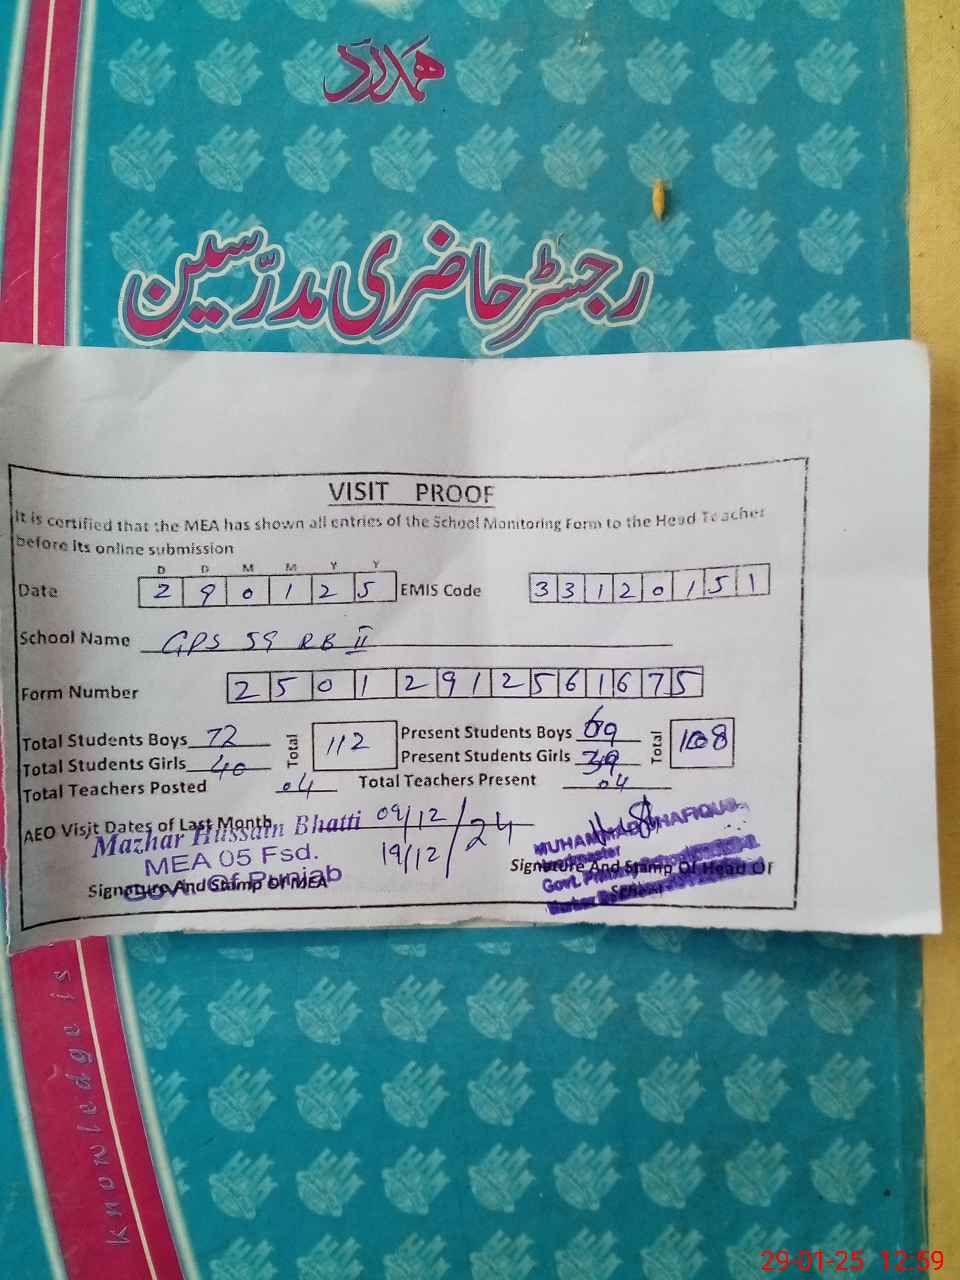 ہمدرد
رجسٹر حاضری مدرّسین
VISIT PROOF
It is certified that the MEA has shown all entries of the School Monitoring Form to the Head Teacher
before its online submission
D D M M Y Y
Date 2 9 0 1 2 5 EMIS Code 3 3 1 2 0 1 5 1
School Name GPS 59 RB II
Form Number 2 5 0 1 2 9 1 2 5 6 1 6 7 5
Total Students Boys 72 Total 112 Present Students Boys 69 Total 108
Total Students Girls 40 Present Students Girls 39
Total Teachers Posted 04 Total Teachers Present 04
AEO Visit Dates of Last Month 09/12 19/12 /24
Mazhar Hussain Bhatti
MEA 05 Fsd.
Govt. Of Punjab
Signature And Stamp Of MEA
MUHAMMAD
Headmaster
Govt.
Signature And Stamp Of Head Of
School
knowledge is
29-01-25 12:59